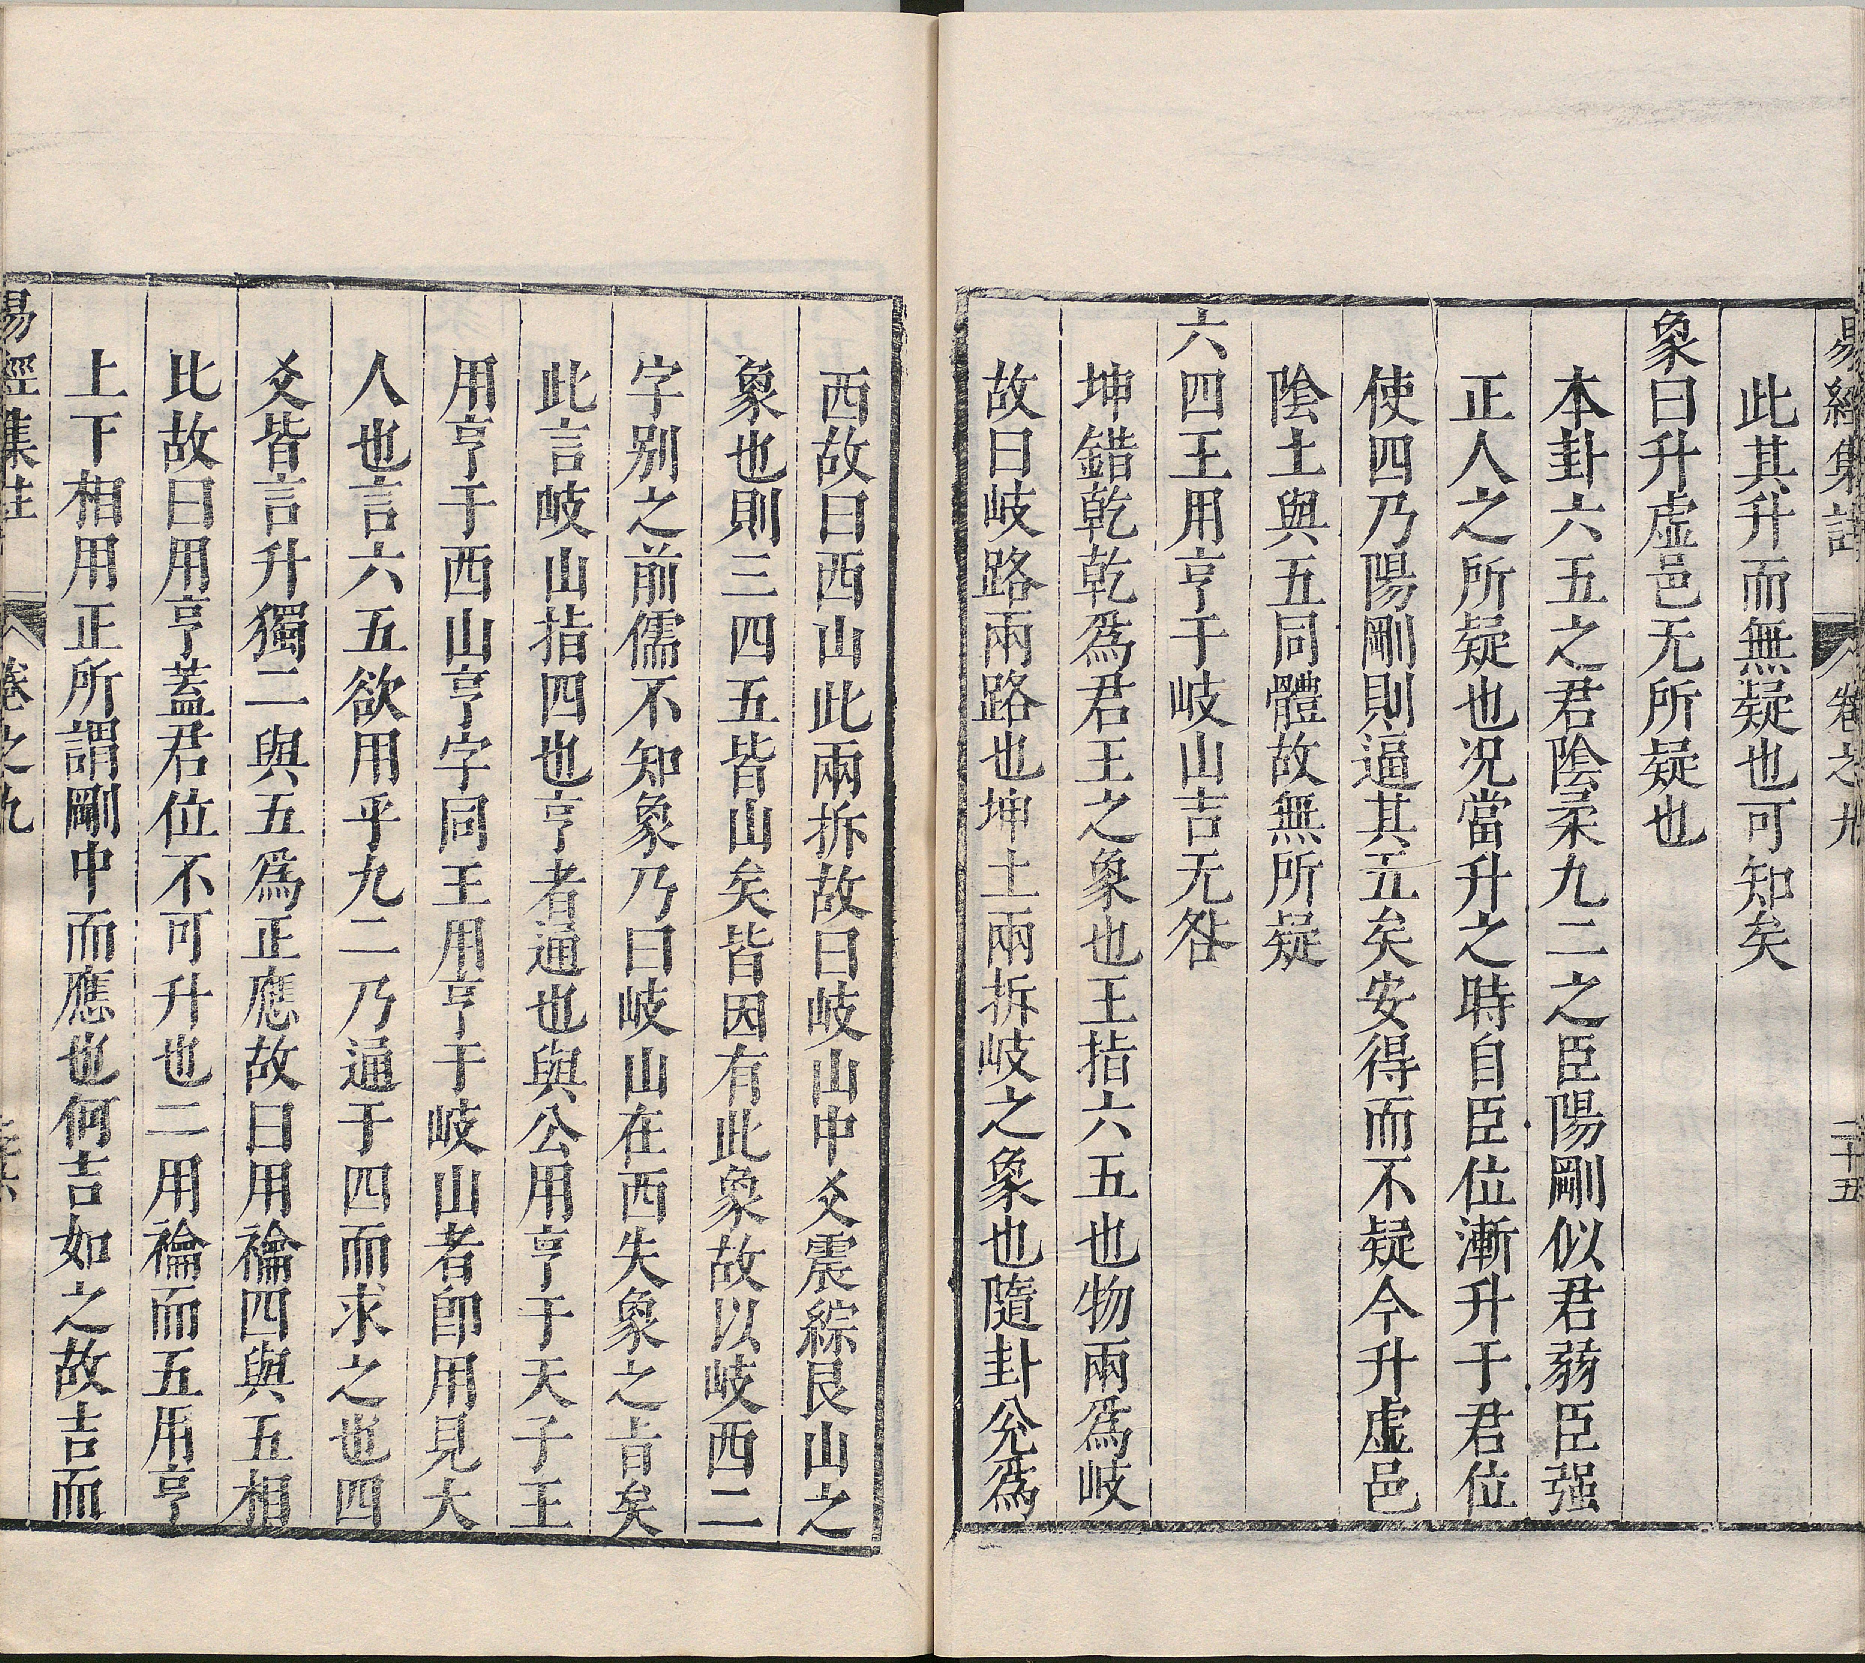 易經集註 卷之九 二十五
此其升而無疑也可知矣
象曰升虛邑无所疑也
本卦六五之君陰柔九二之臣陽剛似君弱臣强
正人之所疑也况當升之時自臣位漸升于君位
使四乃陽剛則逼其五矣安得而不疑今升虛邑
陰土與五同體故無所疑
六四王用亨于岐山吉无咎
坤錯乾乾爲君王之象也王指六五也物兩爲岐
故曰岐路兩路也坤土兩拆岐之象也隨卦兊爲
西故曰西山此兩拆故曰岐山中爻震綜艮山之
象也則三四五皆山矣皆因有此象故以岐西二
字别之前儒不知象乃曰岐山在西失象之肯矣
此言岐山指四也亨者通也與公用亨于天子王
用亨于西山亨字同王用亨于岐山者卽用見大
人也言六五欲用乎九二乃通于四而求之也四
爻皆言升獨二與五爲正應故曰用禴四與五相
比故曰用亨蓋君位不可升也二用禴而五用亨
上下相用正所謂剛中而應也何吉如之故吉而
易經集註 卷之九